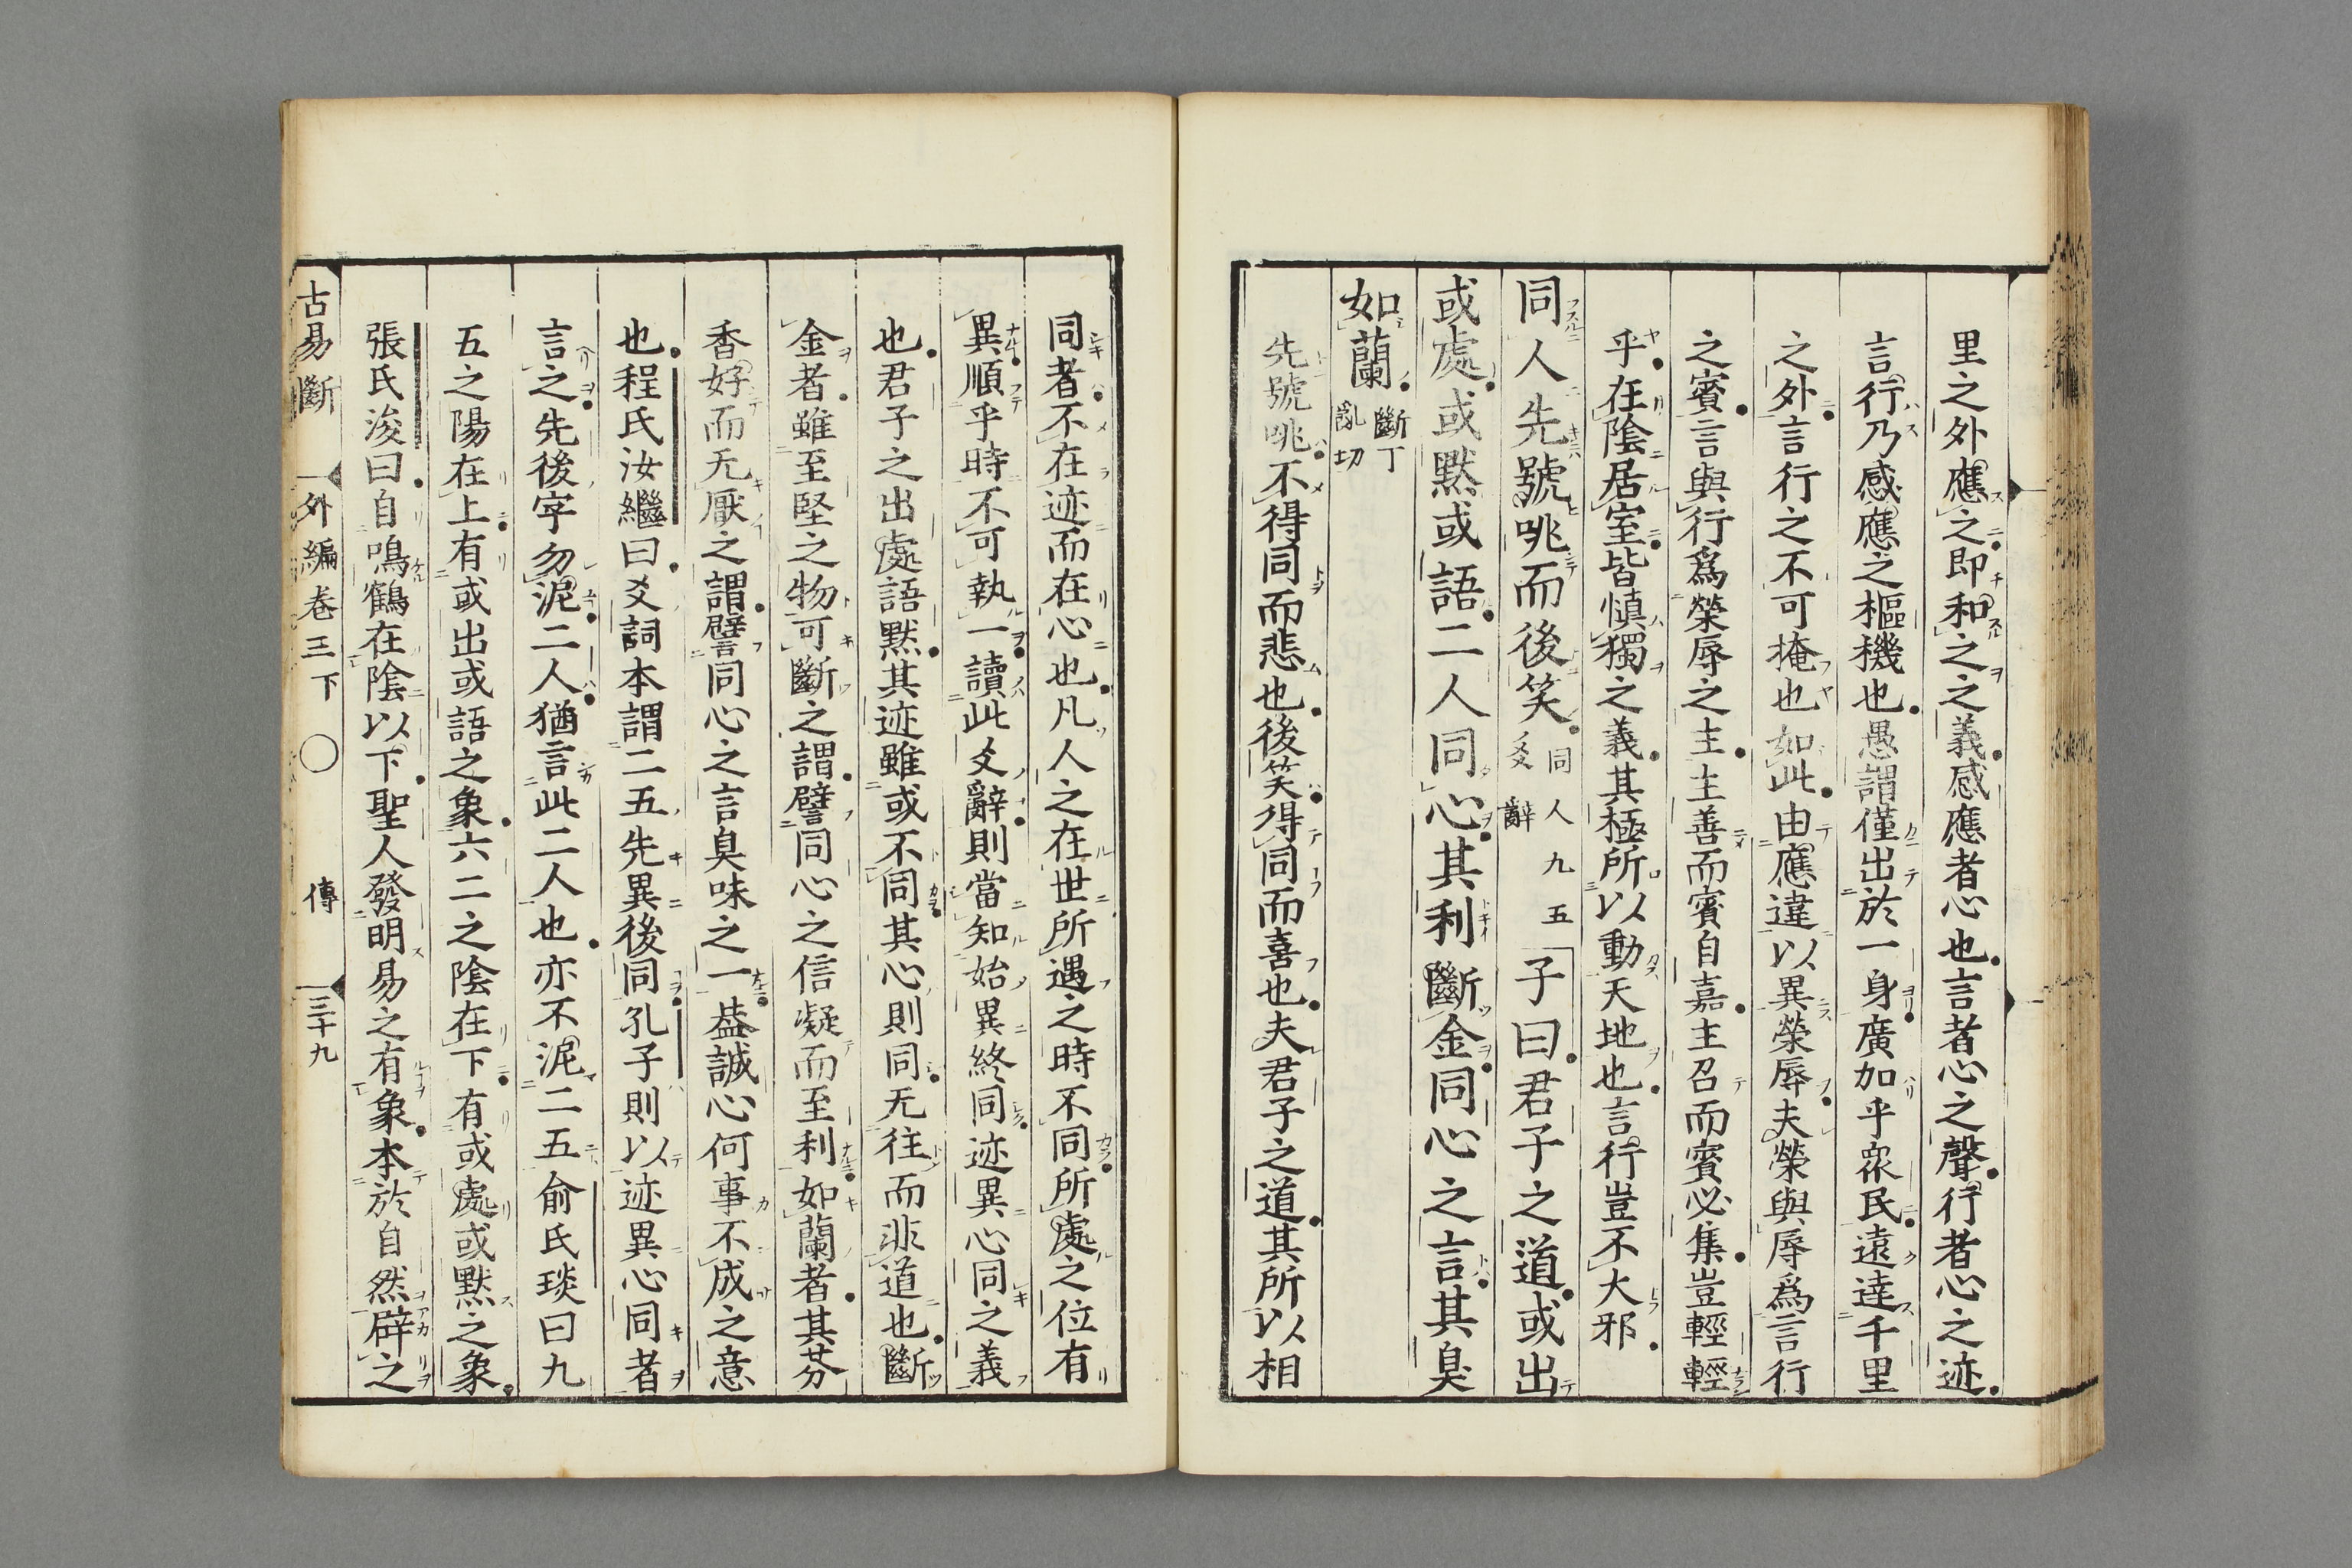 里之外應之即和之之義感應者心也言者心之聲行者心之迹
言行乃感應之樞機也愚謂僅出於一身廣加乎衆民遠達千里
之外言行之不可掩也如此由應違以異榮辱夫榮與辱爲言行
之賓言與行爲榮辱之主主善而賓自嘉主召而賓必集豈輕輕
乎在陰居室皆愼獨之義其極所以動天地也言行豈不大邪
同人先號咷而後笑同人九五爻辭子曰君子之道或出
或處或默或語二人同心其利斷金同心之言其臭
如蘭斷丁亂切
先號咷不得同而悲也後笑得同而喜也夫君子之道其所以相
同者不在迹而在心也凡人之在世所遇之時不同所處之位有
異順乎時不可執一讀此爻辭則當知始異終同迹異心同之義
也君子之出處語默其迹雖或不同其心則同无往而非道也斷
金者雖至堅之物可斷之謂譬同心之信凝而至利如蘭者其芬
香好而无厭之謂譬同心之言臭味之一蓋誠心何事不成之意
也程氏汝繼曰爻詞本謂二五先異後同孔子則以迹異心同者
言之先後字勿泥二人猶言此二人也亦不泥二五俞氏琰曰九
五之陽在上有或出或語之象六二之陰在下有或處或默之象
張氏浚曰自鳴鶴在陰以下聖人發明易之有象本於自然辟之
古易斷 外編卷三下 ○ 傳 三十九